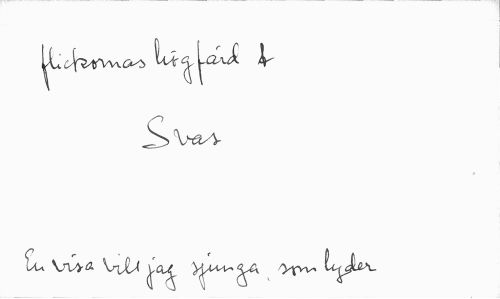 flickornas högfärd &
Svar
En visa vill jag sjunga, som lyder